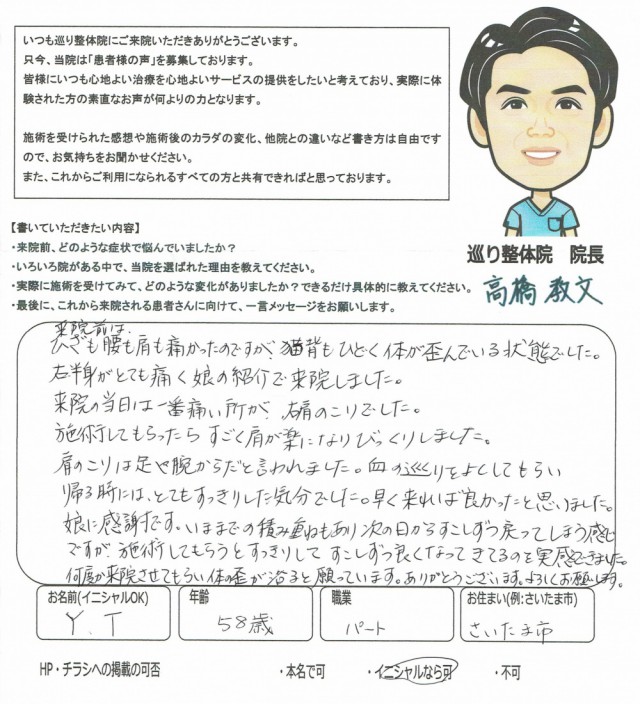 いつも巡り整体院にご来院いただきありがとうございます。
只今、当院は「患者様の声」を募集しております。
皆様にいつも心地よい治療を心地よいサービスの提供をしたいと考えており、実際に体
験された方の素直なお声が何よりの力となります。
施術を受けられた感想や施術後のカラダの変化、他院との違いなど書き方は自由です
ので、お気持ちをお聞かせください。
また、これからご利用になられるすべての方と共有できればと思っております。
巡り整体院 院長
高橋 教文
【書いていただきたい内容】
・来院前、どのような症状で悩んでいましたか？
・いろいろ院がある中で、当院を選ばれた理由を教えてください。
・実際に施術を受けてみて、どのような変化がありましたか？できるだけ具体的に教えてください。
・最後に、これから来院される患者さんに向けて、一言メッセージをお願いします。
来院前は、
ひざも腰も肩も痛かったのですが、猫背もひどく体が歪んでいる状態でした。
右半身がとても痛く娘の紹介で来院しました。
来院の当日は一番痛い所が、右肩のこりでした。
施術してもらったらすごく肩が楽になりびっくりしました。
肩のこりは足や腕からだと言われました。血の巡りをよくしてもらい
帰る時には、とてもすっきりした気分でした。早く来れば良かったと思いました。
娘に感謝です。いままでの積み重ねもあり次の日からすこしずつ戻ってしまう感じ
ですが施術してもらうとすっきりしてすこしずつ良くなってきてるのを実感できました。
何度か来院させてもらい体の歪が治ると願っています。ありがとうございます。よろしくお願いします。
お名前(イニシャルOK) 年齢 職業 お住まい(例:さいたま市)
Y.T 58歳 パート さいたま市
HP・チラシへの掲載の可否 ・本名で可 ・イニシャルなら可 ・不可